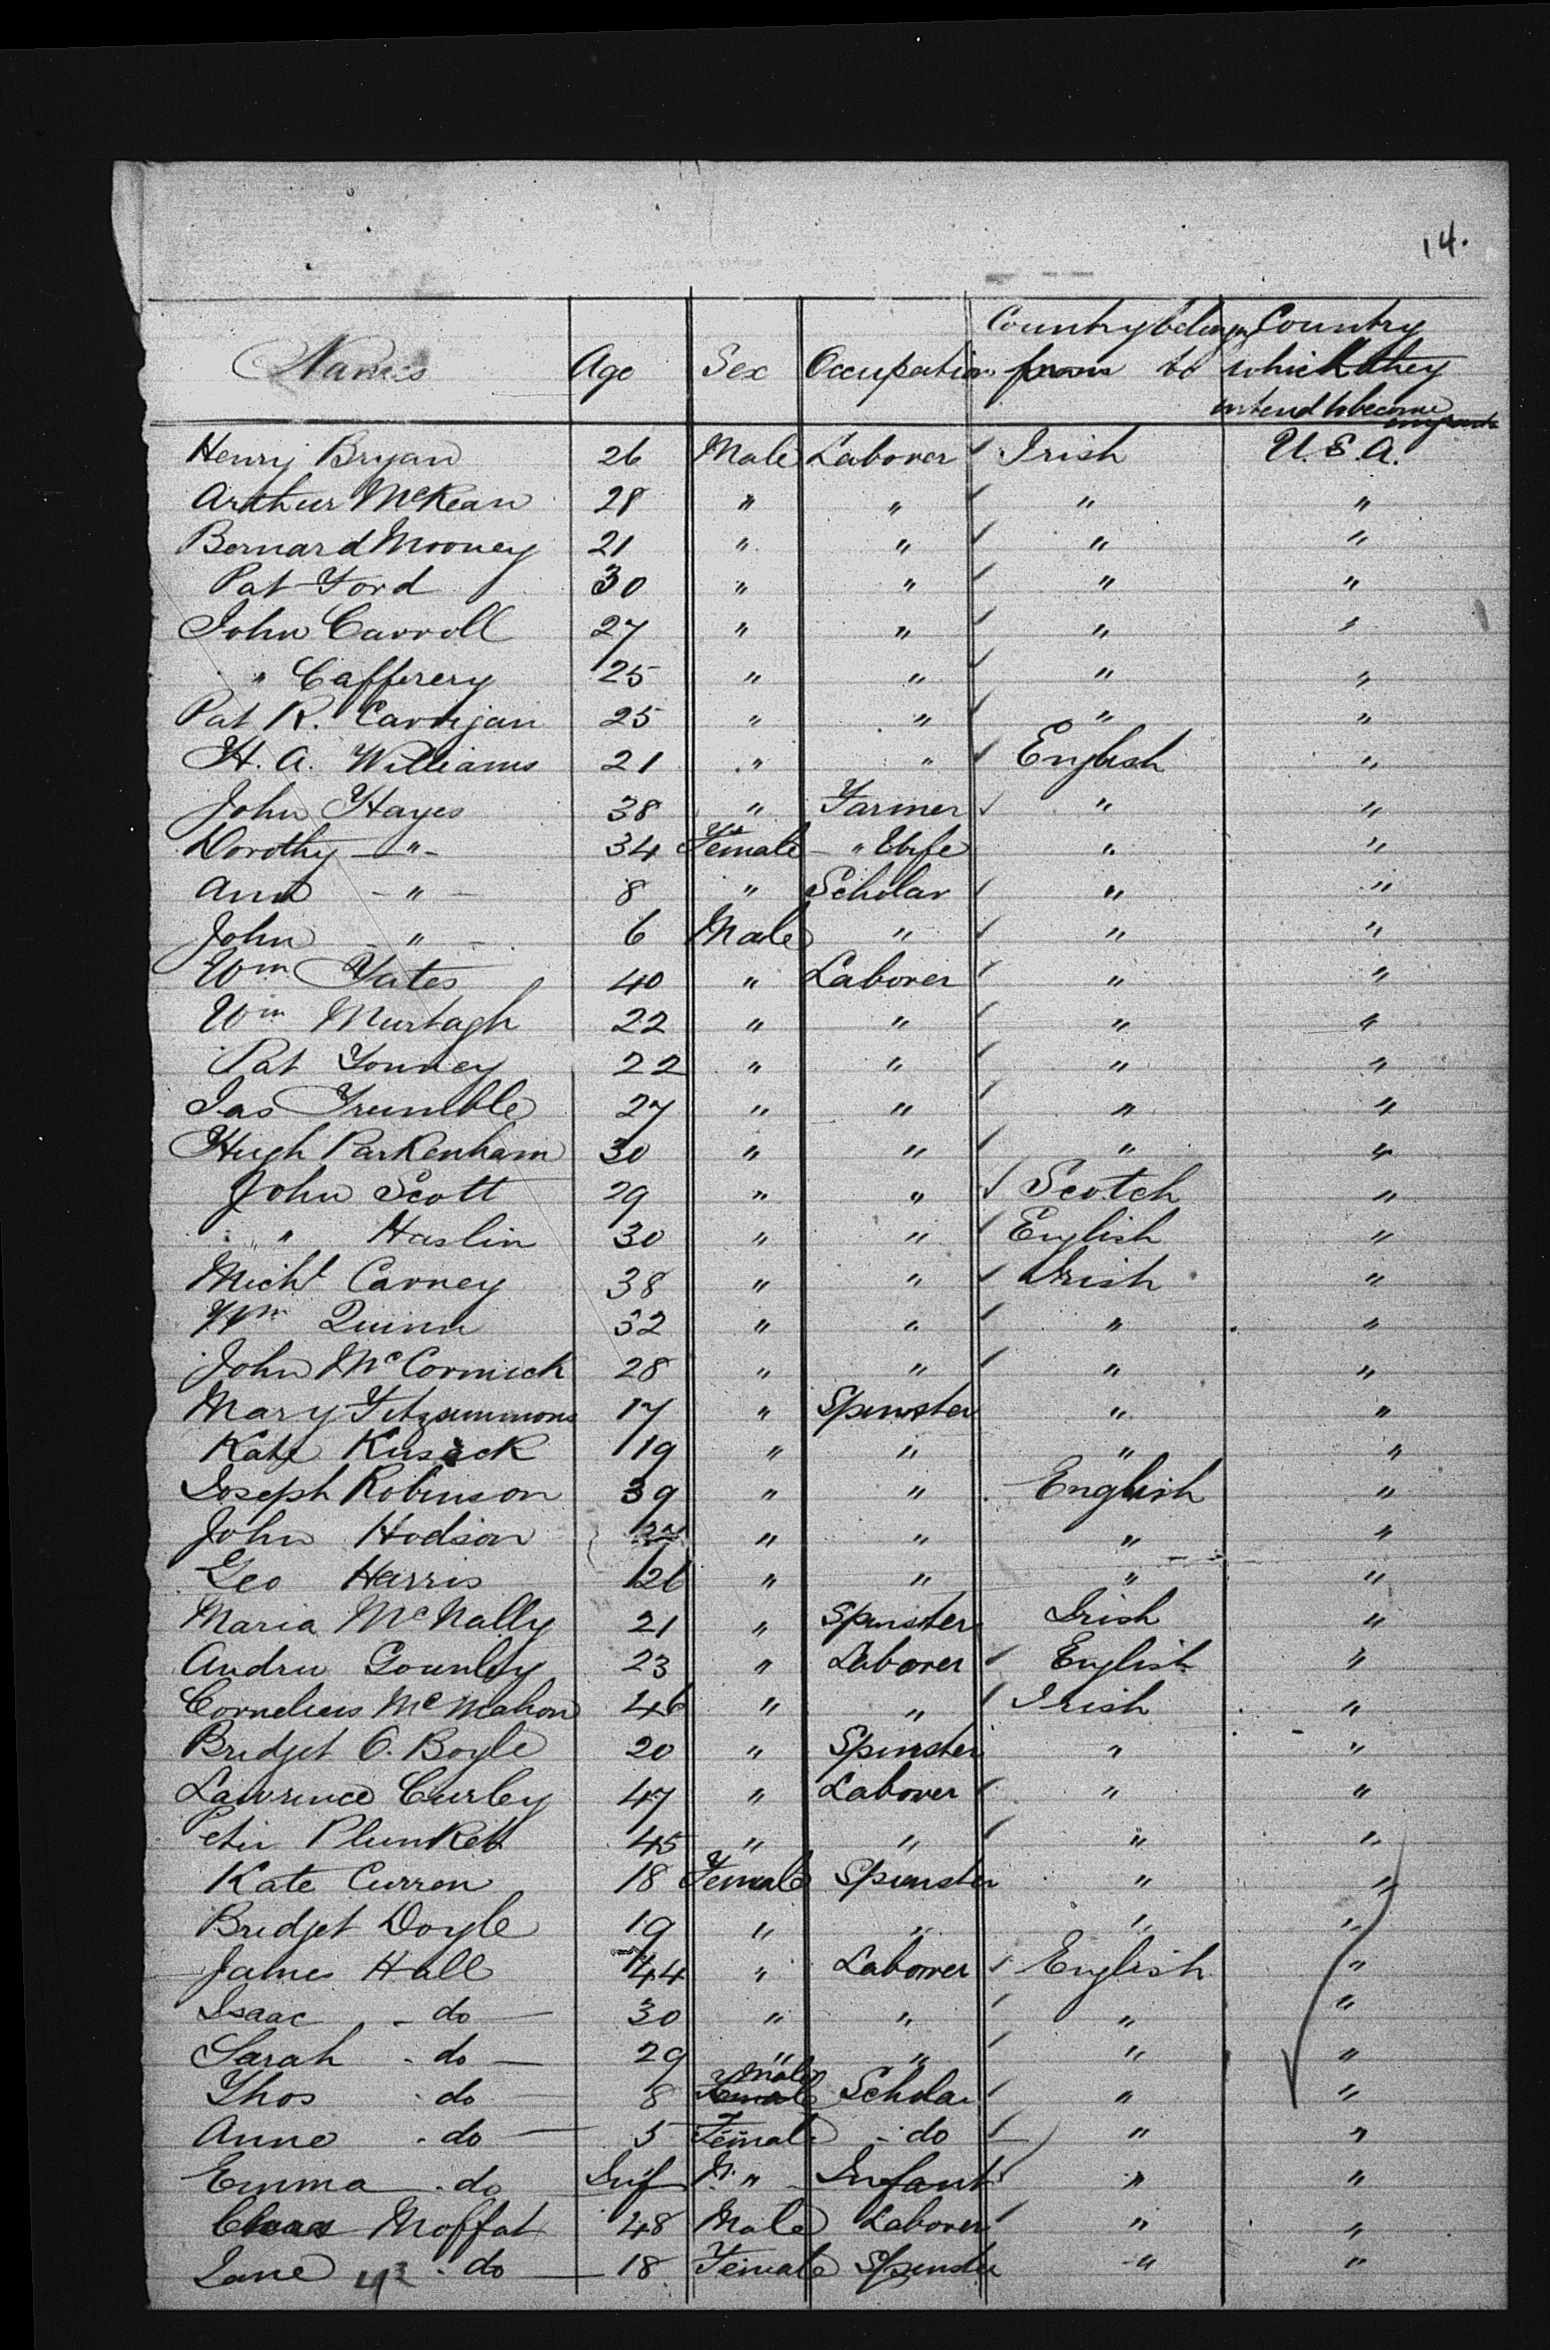 14.
Names Age Sex Occupation Country belonging Country
from to which they
intend to become
Henry Bryan 26 Male Laborer ✓ Irish U.S.A.
Arthur McKean 28 " " ✓ " "
Bernard Mooney 21 " " ✓ " "
Pat Ford 30 " " ✓ " "
John Carroll 27 " " ✓ " "
" Cafferery 25 " " ✓ " "
Pat R. Carrigan 25 " " ✓ " "
H. A. Williams 21 " " ✓ English "
John Hayes 38 " Farmer ✓ " "
Dorothy " 34 Female " Wife " "
Ann " 8 " Scholar ✓ " "
John " 6 Male " ✓ " "
Wm Yates 40 " Laborer ✓ " "
Wm Murtagh 22 " " ✓ " "
Pat 22 " " ✓ " "
Jas Trumble 27 " " ✓ " "
Hugh Parkenham 30 " " ✓ " "
John Scott 29 " " ✓ Scotch "
" Haslin 30 " " ✓ English "
Michl Carney 38 " " ✓ Irish "
Wm Quinn 32 " " ✓ " "
John McCormick 28 " " ✓ " "
Mary Fitzsimmons 17 " Spinster " "
Kate Kusack 19 " " " "
Joseph Robinson 39 " " English "
John Hodson " " " "
Geo Harris 26 " " " "
Maria McNally 21 " Spinster Irish "
Andrew Gounley 23 " Laborer ✓ English "
Cornelius McMahon 46 " " ✓ Irish "
Bridget O. Boyle 20 " Spinster " "
Lawrence Curley 47 " Laborer ✓ " "
Plunkett 45 " " ✓ " "
Kate Curren 18 Female Spinster " "
Bridget Doyle 19 " " " "
James Hall 44 " Laborer ✓ English "
Isaac - do - 30 " " ✓ " "
Sarah - do - 29 " " ✓ " "
Thos - do - 8 Male Scholar ✓ " "
Anne - do - 5 Female - do ✓ " "
Emma - do Inf " Infant ✓ " "
Chas Moffat 48 Male Laborer ✓ " "
Jane - do - 18 Female Spinster " "